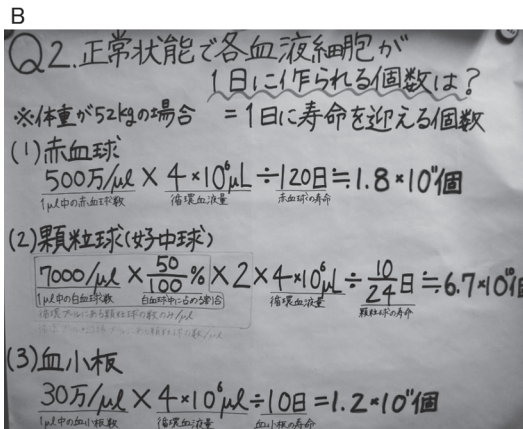 B
Q2.正常状能で各血液細胞が
1日に作られる個数は?
※体重が52kgの場合 =1日に寿命を迎える個数
(1)赤血球
500万/μl × 4×10⁶μL ÷ 120日 ≒ 1.8×10¹¹個
1μl中の赤血球数 循環血液量 赤血球の寿命
(2)顆粒球(好中球)
7000/μl × 50/100% × 2 × 4×10⁶μL ÷ 10/24日 ≒ 6.7×10¹⁰個
1μl中の白血球数 白血球中に占める割合 循環血液量 顆粒球の寿命
循環プールにある顆粒球の数のみ/μl
(3)血小板
30万/μl × 4×10⁶μl ÷ 10日 = 1.2×10¹¹個
1μl中の血小板数 循環血液量 血小板の寿命